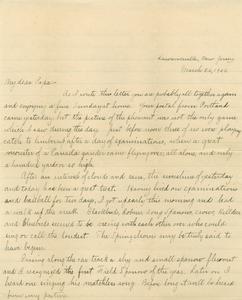 Lawrenceville, New Jersey
March 26, 1906
My dear Papa:
As I write this letter you are probably all together again
and enjoying a fine Sunday at home. Your postal from Portland
came yesterday but the picture of the pheasant was not the only game
which I saw during the day. Just before noon three of us were playing
catch to limber up after a day of examinations, when a great
monster of a Canada goose came flying over, all alone and only
a hundred yards or so high.
After an interval of clouds and rain, the sunshine of yesterday
and today has been a great treat. Having had no examinations
and baseball for two days, I got up early this morning and took
a walk up the creek. Blackbirds, Robins, Song Sparrows, Crows, Killdeer
and Bluebirds seemed to be vieing with each other who could
sing or call the loudest. The Spring chorus may be truly said to
have begun.
Going along the car track a shy and small sparrow flew out
and I recognized the first Field Sparrow of the year. Later on I
heard one singing his matchless song. Before long it will be heard
from every pasture.